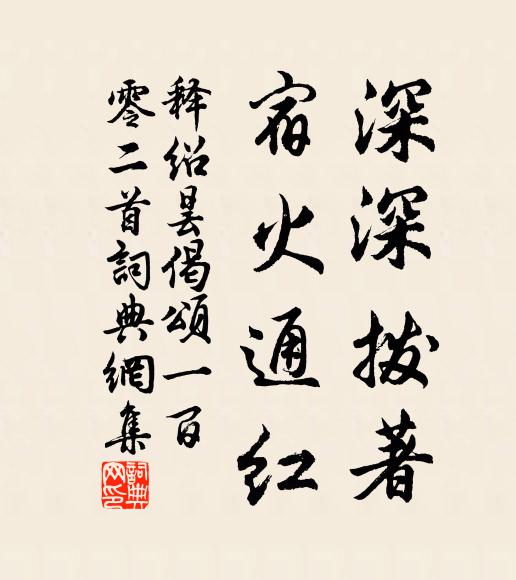 深深拨著
宿火通红
释绍昙偈颂一百
零二首詞典網集
詞典网印